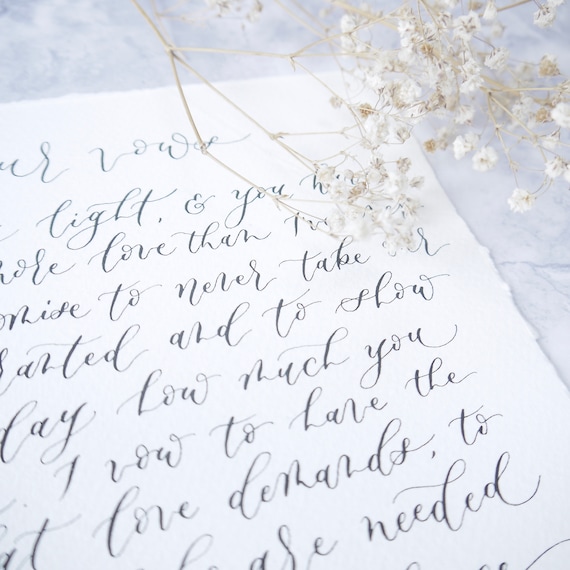 vows
light, & you
more love than
to never take
and to show
day how much you
I vow to have the
love demands, to
are needed